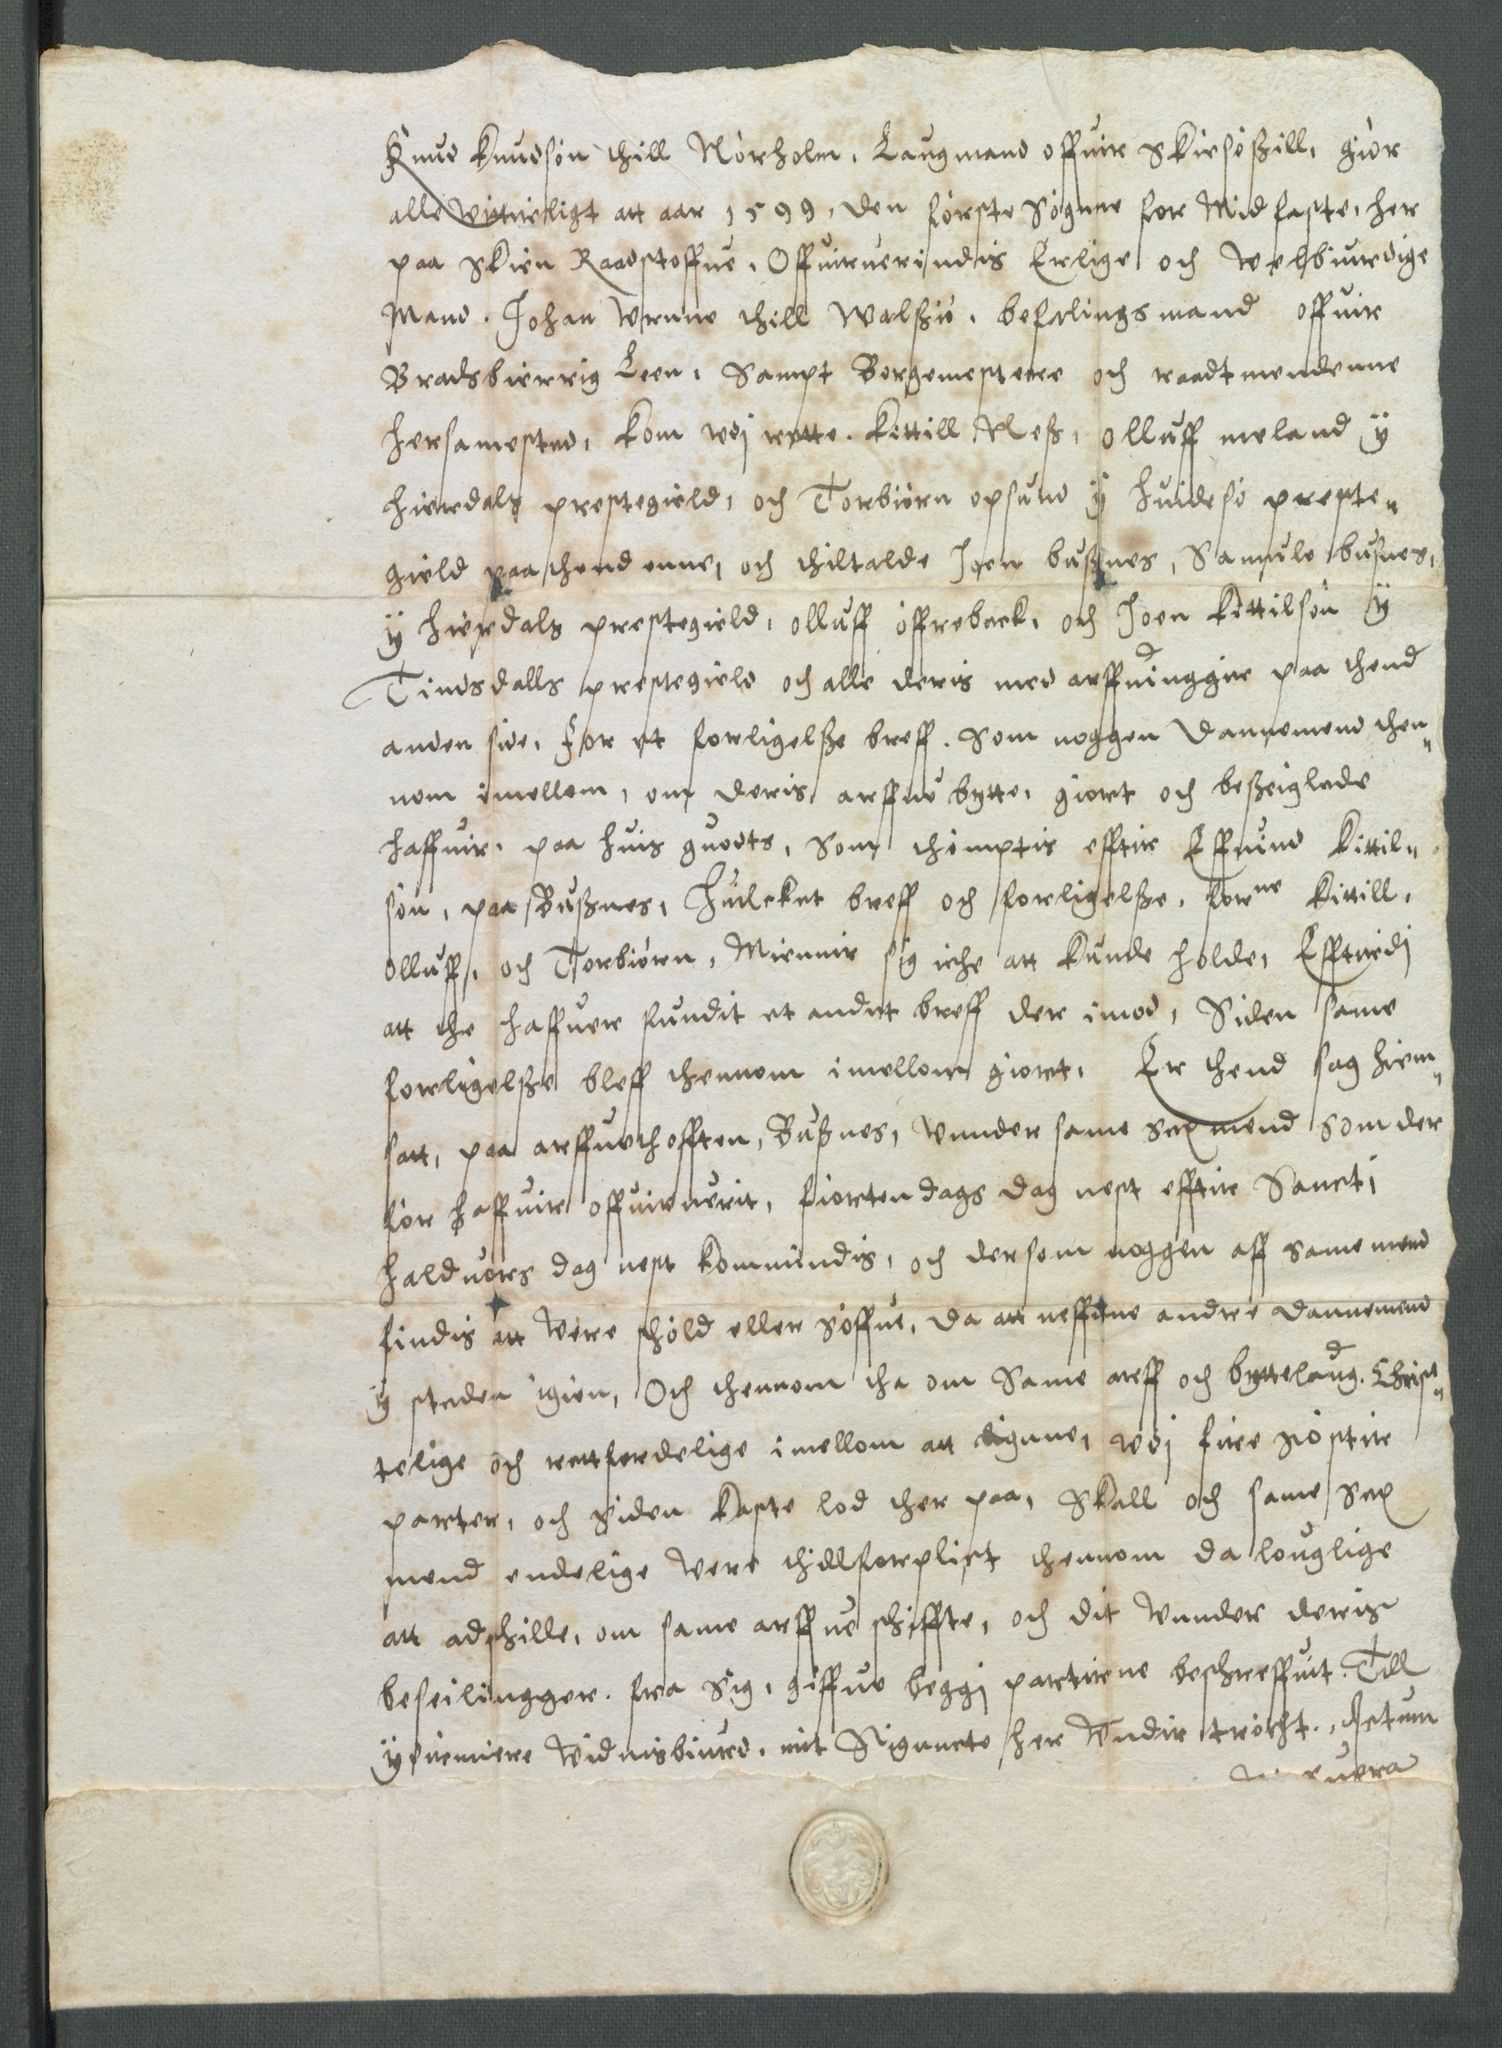 Knud Knudsön thill Nörholm, Laugmand offuir Skiesößill, giör
alle witterligt att aar 1599, den förste Sögnne for Midfaste, her
paa Skien Raadstoffue, Offuiruerindis Erlige och Welbiurdige
Mand. Johan Wrnne thill Walßiö, befalings mand offuir
Bradsbierrig Leen, Sampt Borgemestere och raadtmendenne
hersamested, kom vdj rette. Kittill Neß, olluff meland ÿ
hierdals prestegield, och Torbiörn opsund ÿ huidesö preste„
gield paa thend enne, och thiltalde Joen bußnes, Samule bußnes,
ÿ hierdals prestegield, olluff öffreback, och Joen Kittilsön ÿ
Tindsdalls prestegield och alle deris med arffuinggir paa thend
anden side, for et forligelße breff. Som noggen Dannemend then„
nom imellom, om deris arffue bytte, giort och beßeiglede
haffuir, paa huis guodts, som thimptis efftir Effuind Kittil„
sön, paa Bußnes, Huilcket breff och forligelße, forne Kittill,
olluff, och Torbiörn, Mienuir sig iche att kunde holde, Effterdj
att the haffuer fundit et andet breff der imod, Siden same
forligelße bleff thennom imellom giort, Er thend sag hiem„
satt, paa arffuethofften, Bußnes, Wunder same Sex mend som der
för haffuir offuiruerit, fiorten dags dag nest efftir Sancti
halduors dag nest kommindis, och dersom noggen aff same mend
findis att Were schöld eller Söffue, da att neffne andre dannemend
ÿ steden igien, Och thennom tha om Same arff och byttelaug. Christ„
telige och rettferdelige imellom att ligne, vdj fire siöstir
parter, och siden kaste lod ther paa, Skall och same Sex
mend endelige Were thillforplict thennom da louglige
att adschille, om same arffue schiffte, och dit Wunder deris
beseilingger. fra Sig, giffue beggj partirne beschreffuit. Till
ÿdermere Widnisbiurd. mit Signete her Wndir tröcht. Actum